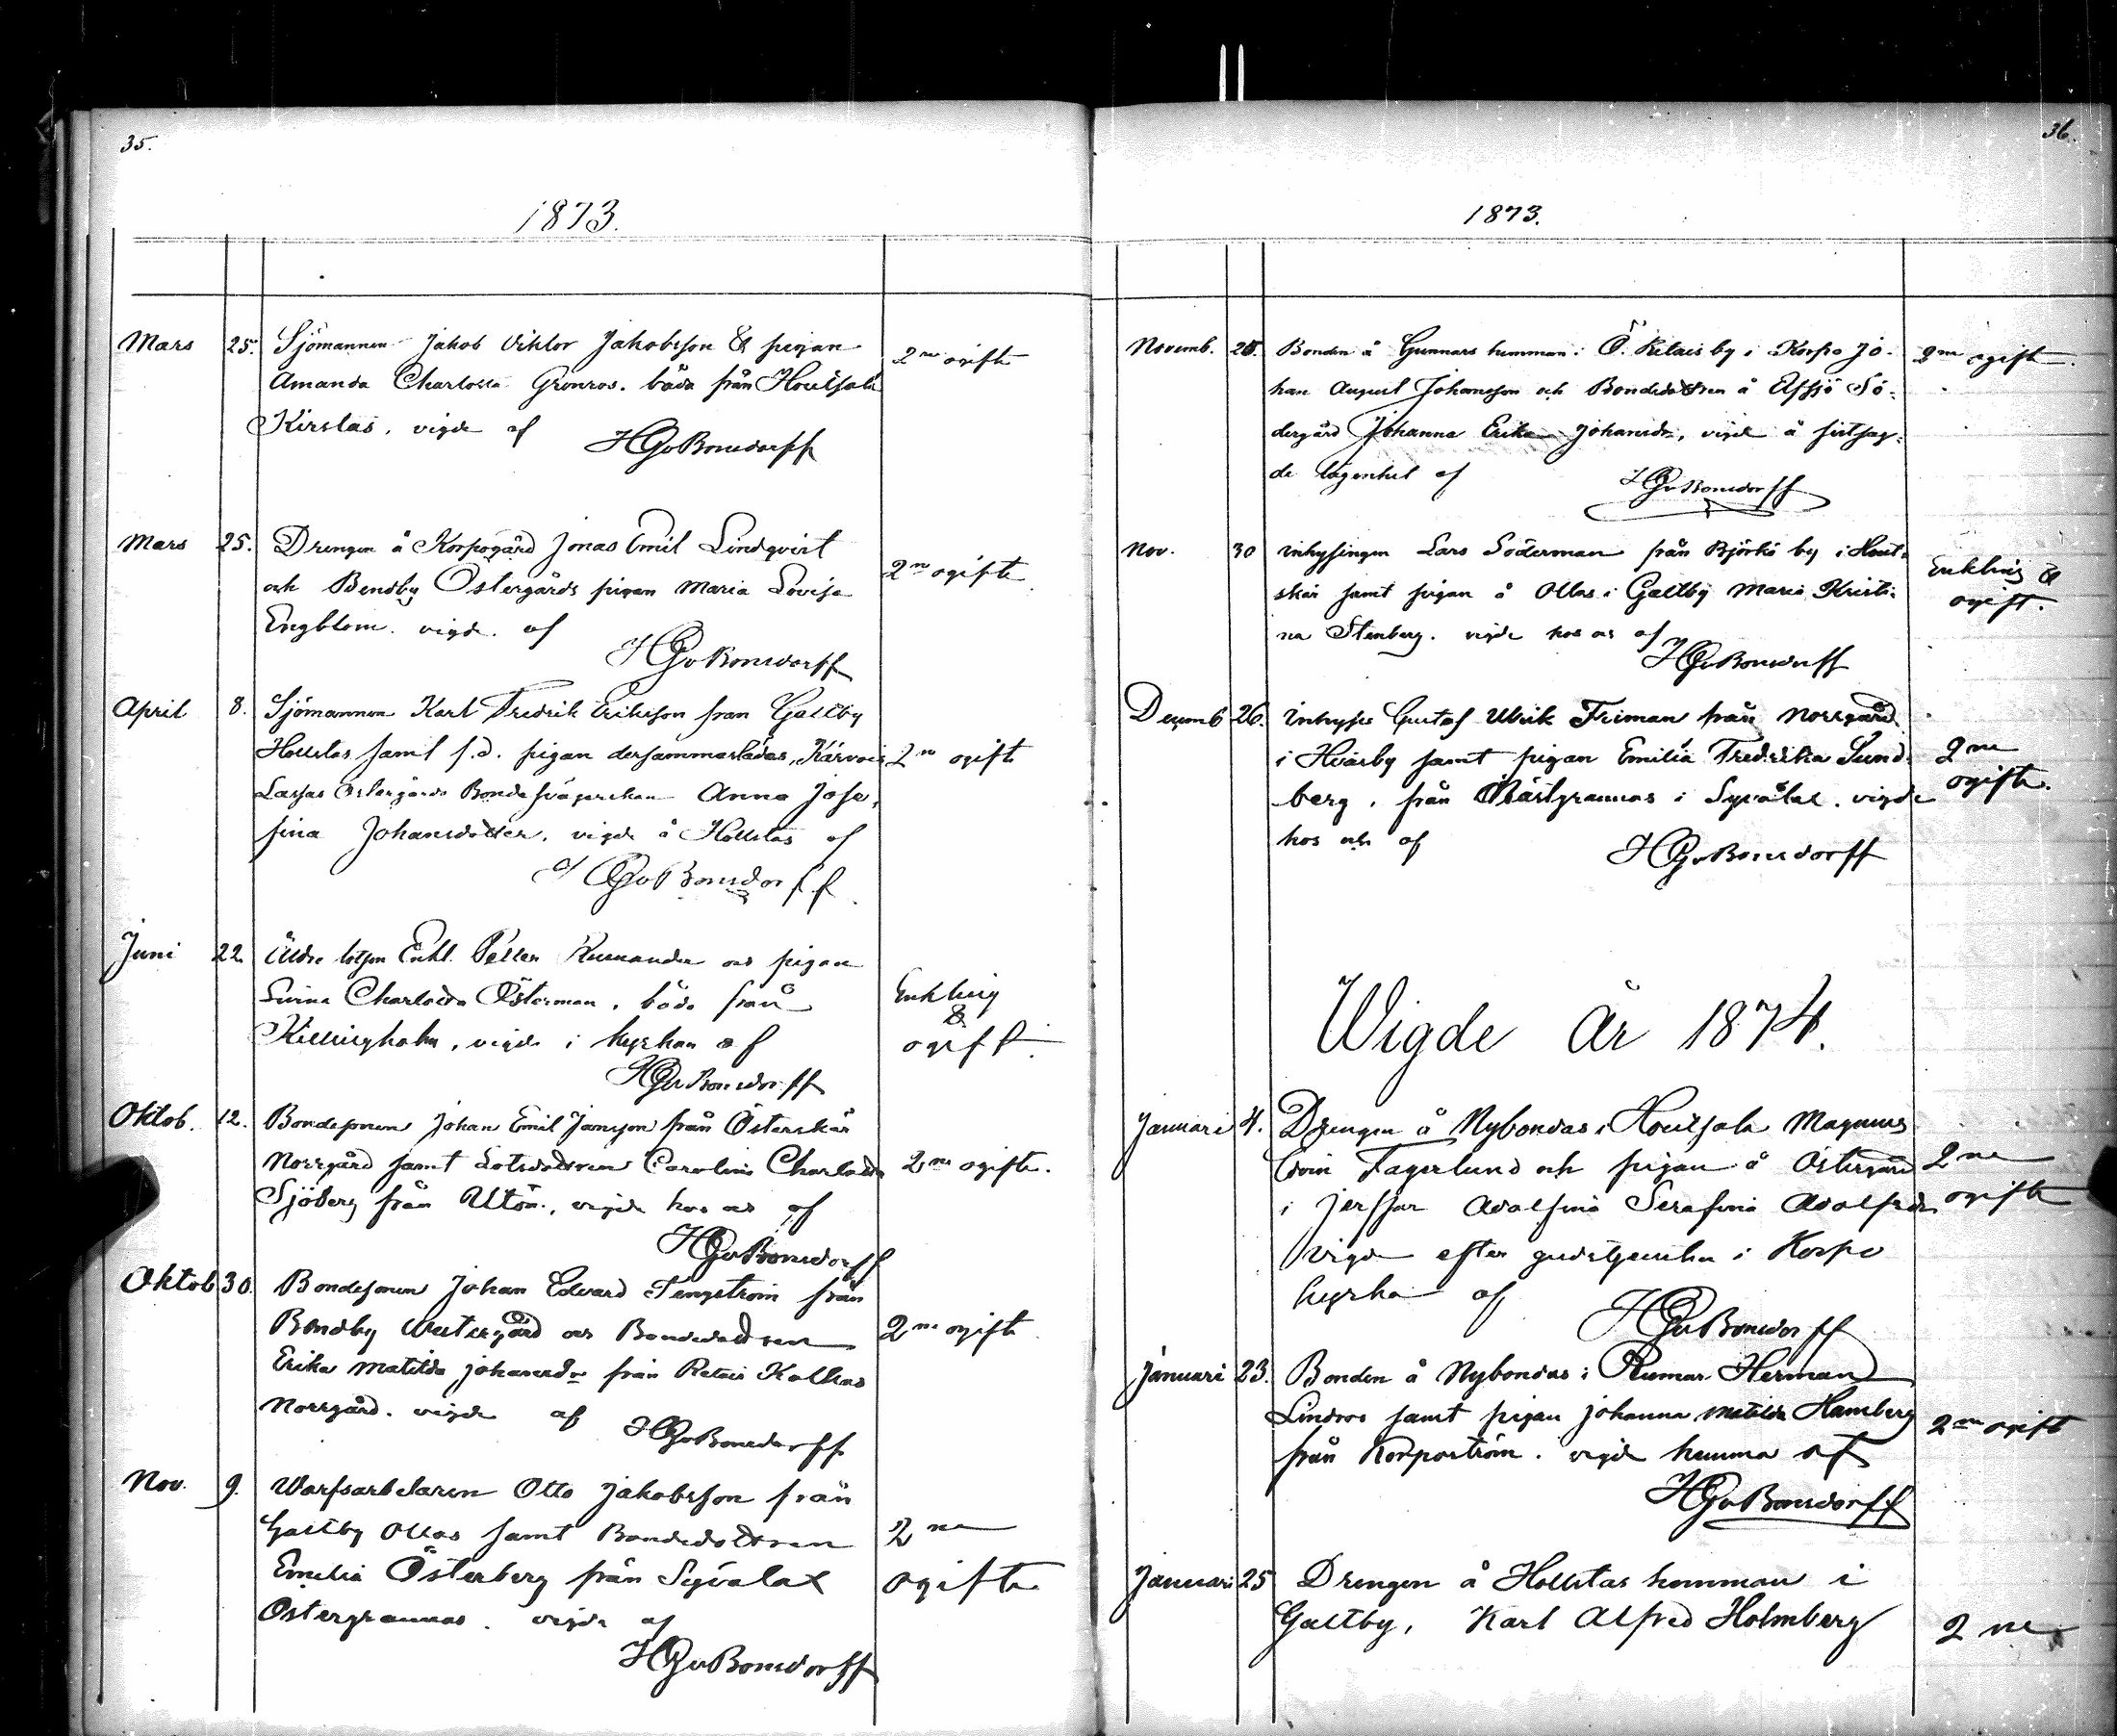 35.
1873.
Mars 25. Sjömannen Jakob Viktor Jakobsson & pigan 2ne ogifta
Amanda Charlotta Grönros. båda från Houtsala
Kirstas, vigde af HGvBonsdorff
Mars 25. Drengen å Korpogård Jonas Emil Lindqvist
och Bendby Östergårds pigan Maria Lovisa 2ne ogifta
Engblom. vigde. af
HGvBonsdorff
April 8. Sjömannen Karl Fredrik Eriksson från Galtby
Hollstas samt f.d. pigan dersammastädes, Kärvois 2ne ogifta
Lassas Östergårds Bonde svägerskan Anna Jose-
fina Johansdotter, vigde å Hollstas af
HGvBonsdorff
Juni 22 Äldre lotsen Enkl. Petter Rumander och pigan
Charlotta Österman, båda från Enkling
&
Killingholm, vigde i kyrkan af ogift.
HGvBonsdorff
Oktob. 12. Bondesonen Johan Emil Jansson från Österskär
Norrgård samt Lotsdottren Carolina Charlotta 2ne ogifta.
Sjöberg från Utön, vigde hos oss af
HGvBonsdorff
Oktob 30. Bondesonen Johan Edvard Tengström från
Bendby Westergård och Bondedottren 2ne ogifta
Erika Matilda Johansdr från Retais Kalkas
Norrgård. vigde af HGvBonsdorff
Nov. 9. Warfsarbetaren Otto Jakobsson från
Galtby Ollas samt Bondedottren 2ne
Emilia Österberg från Syvälax ogifta
Östergrannas. vigde af
HGvBonsdorff
36.
1873.
Novemb. Bonden å Gunnars hemman i Ö. Retais by i Korpo Jo- 2ne ogifta.
han August Johansson och Bondedottren å Elfsjö Sö-
dergård Johanna Erika Johansdr, vigde å sistsag-
de lägenhet af HGvBonsdorff
Nov. 30 Inhysingen Lars Söderman från Björkö by i Hout- Enkling &
skär samt pigan å Ollas i Galtby Maria Kristi- ogift.
na Stenberg. vigde hos oss af
HGvBonsdorff
Decemb 26. Inhyses Gustaf Ulrik Friman från Norrgård
i Hvarby samt pigan Emilia Fredrika Sund- 2ne
berg, från Västgrannas i Syvälax. vigde ogifta.
hos oss af HGvBonsdorff
Wigde år 1874.
Januari 4. Drengen å Nybondas i Houtsala Magnus
Edvin Fagerlund och pigan å Östergård 2ne
i Jerssar Adolfina Serafina Adolfsdr ogifta
vigde efter gudstjensten i Korpo
kyrka af HGvBonsdorff
Januari 23. Bonden å Nybondas i Rumar Herman
Lindroos samt pigan Johanna Matilda Hamberg 2ne ogift
från Korpoström. vigde hemma af
HGvBonsdorff
Januari 25 Drengen å Hollstas hemman i
Galtby, Karl Alfred Holmberg 2ne